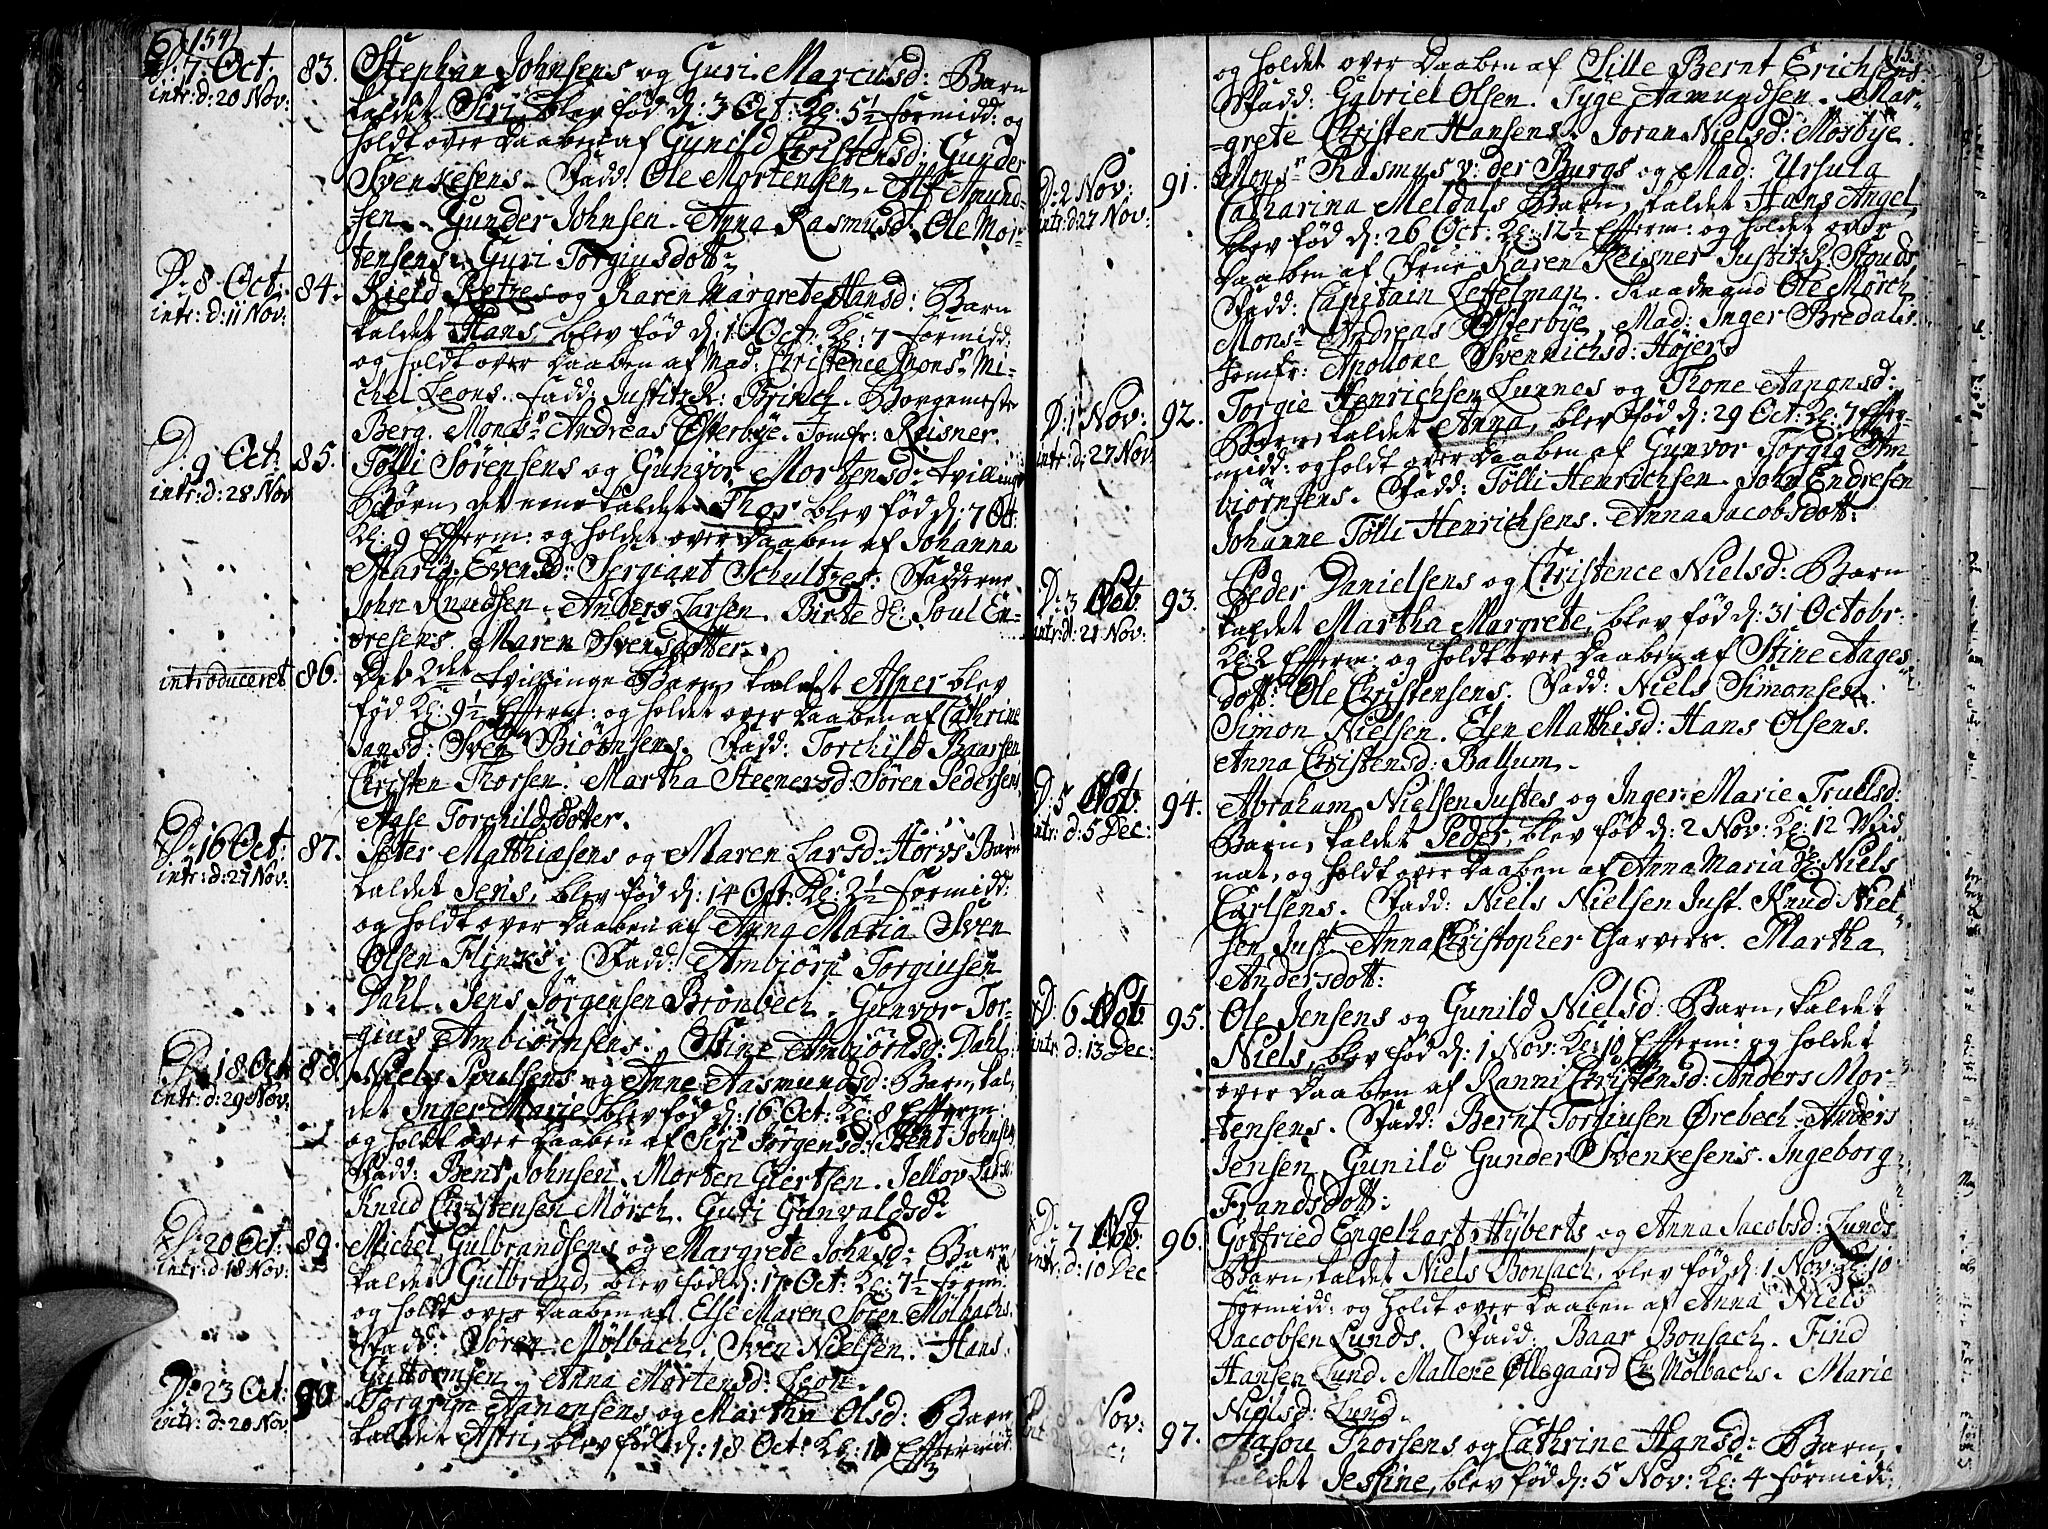 (154)
D: 7. Oct:
intr: d: 20 Nov:
83. Stephan Johnsens og Guri Marcusd: Barn
kaldet Siri, blev fød d: 3 Oct: Kl: 5½ Formidd: og
holdt over Daaben af Gunild Christensd: Gunder
Svenkesens. Fadd: Ole Mortensen. Alf Amund-
sen. Gunder Johnsen. Anna Rasmusd: Ole Mor-
tensens. Guri Torgiusdott:
D: 8 Oct:
intr: d: 11 Nov:
84. Kield Retzes og Karen Margrete Hansd: Barn
kaldet Hans, blev fød d: 1 Oct: Kl: 7 Formidd:
og holdt over Daaben af Mad: Christence Mons: Mi-
chel Leons. Fadd: Justitz R: Brinch. Borgemester
Berg. Monsr: Andreas Østerbye. Jomfr: Reisner.
D: 9 Oct:
intr: d: 28 Nov
85. Tölli Sörensens og Gunvor Mortensd: tvillinge
Børn, det eene kaldet Thos blev fød d: 7 Oct:
Kl: 9 Efferm: og holdet over Daaben af Johanna
Maria Evensd: Sergiant Schultzes: Fadderne
John Knudsen. Anders Larsen. Birte Poul En-
dresens. Maren Svensdotter.
introduceret
86. Det 2det tvillinge Barn, kaldet Asner blev
fød Kl: 9½ Efferm: og holdet over Daaben af Cathrine
Jansd: Sven Biörnsens. Fadd: Torchild Baarsen
Christen Thorsen. Martha Steenersd: Sören Pedersens
Aase Torchildsdotter.
D: 16 Oct:
intr: d: 27 Nov:
87. Peter Matthiæsens og Maren Larsd: Horvs Barn
kaldet Jens, blev fød d: 14 Oct: Kl: 2½ Formidd:
og holdt over Daaben af Anna Maria Sven
Olsen Flinks. Fadd: Ambiörn Torgiusen
Dahl. Jens Jörgensen Bronbech. Gunvor Tor-
gius Ambiörnsens. Stine Ambiörnsd: Dahl.
D: 18 Oct
intr: d: 29 Nov:
88. Niels Poulsens og Anne Aasmundsd: Barn, kal-
det Inger Marie, blev fød d: 16 Oct: Kl: 8 Efferm:
og holdt over Daaben af Siri Jörgensd: Bent Johnsens
Fadd: Bent Johnsen. Morten Giertsen. Jellov Larsd:
Knud Christensen Mörch. Guri Gunvaldsd:
D: 20 Oct:
intr: d: 18 Nov:
89. Michel Gulbrandsens og Margrete Johnsd: Barn,
kaldet Gulbrand, blev fødd d: 17 Oct: Kl: 7½ Form:
og holdt over Daaben af Else Maren Sören Mölbachs.
Fadd: Sören Mölbach. Sven Nielsen. Hans
Guttormsen. Anna Mortensd: Leon.
D: 23 Oct:
intr: d: 20 Nov
90. Torgrim Aanonsens og Martha Olsd: Barn
kaldet Astri, blev fød d: 18 Oct: Kl: 10 Eftermidd:
og holdet over Daaben af Lille Bernt Erichsens
Fadd: Gabriel Olsen. Tyge Aamundsen. Mar-
grete Christen Hansens. Joran Nielsd: Mosbye.
D: 2 Nov:
intr: d: 27 Nov:
91. Monsr Rasmus v: der Burgs og Mad: Ursula
Catharina Meldals Barn, kaldet Hans Angel,
blev fød d: 26 Oct: Kl: 12½ Efferm: og holdet over
Daaben af Frue Karen Reisner Justitz R: Stouds
Fadd: Captain Leffelman. Raadmand Ole Mörch
Monsr Andreas Østerbye, Mad: Inger Bredals.
Jomfr: Apollone Svennichsd: Høyer.
D: 1 Nov:
intr: d: 27 Nov
92. Torgie Henrichsen Lunnes og Thone Aanonsd:
Barn, kaldet Anna, blev fød d: 29 Oct: Kl: 7 Efter-
midd: og holdt over Daaben af Gunvor Torgie Am-
biörnsens. Fadd: Tölli Henrichsen. John Endresen
Johanne Tölli Henrichsens. Anna Jacobsdott:
D: 3 Nov
intr: d: 21 Nov:
93. Peder Danielsens og Christence Nielsd: Barn
kaldet Martha Margrete, blev fød d: 31 Octobr:
Kl: 2 Efferm: og holdt over Daaben af Stine Aages-
dott: Ole Christensens. Fadd: Niels Simonsen.
Simon Nielsen. Elen Mathisd: Hans Olsens.
Anna Christensd: Ballum.
D: 5 Nov
intr: d: 5 Dec:
94. Abraham Nielsen Justes og Inger Marie Truelsd:
Barn, kaldet Peder, blev fød d: 2 Nov: Kl: 12 Mid
nat, og holdt over Daaben af Anna Maria Niels
Carlsens. Fadd: Niels Nielsen Just. Knud Niel-
sen Just. Anna Christopher Garvers. Martha
Andersdott:
D: 6 Nov
intr: d: 13 Dec:
95. Ole Jensens og Gunild Nielsd: Barn, kaldet
Niels, blev fød d: 1 Nov: Kl: 10 Efferm: og holdet
over Daaben af Ranni Christensd: Anders Mor-
tensens. Fadd: Bernt Torgiusen Ørebech. Anders
Jensen. Gunild Gunder Svenkesens. Ingeborg
Frandsdott:
D: 7 Nov
intr: d: 10 Dec
96. Gotfried Engelhart Hyberts og Anna Jacobsd: Lunds
Barn, kaldet Niels Bonsach, blev fød d: 1 Nov: Kl: 10
Formidd: og holdt over Daaben af Anna Niels
Jacobsen Lunds. Fadd: Baar Bonsach. Find
Hansen Lund. Mallene Øllegaard Mölbachs. Marie
Nielsd: Lund.
Nov:
Dec:
97. Hasou Thorsens og Cathrine Hansd: Barn,
kaldet Jessine, blev fød d: 5 Nov: Kl: 4 Formidd: